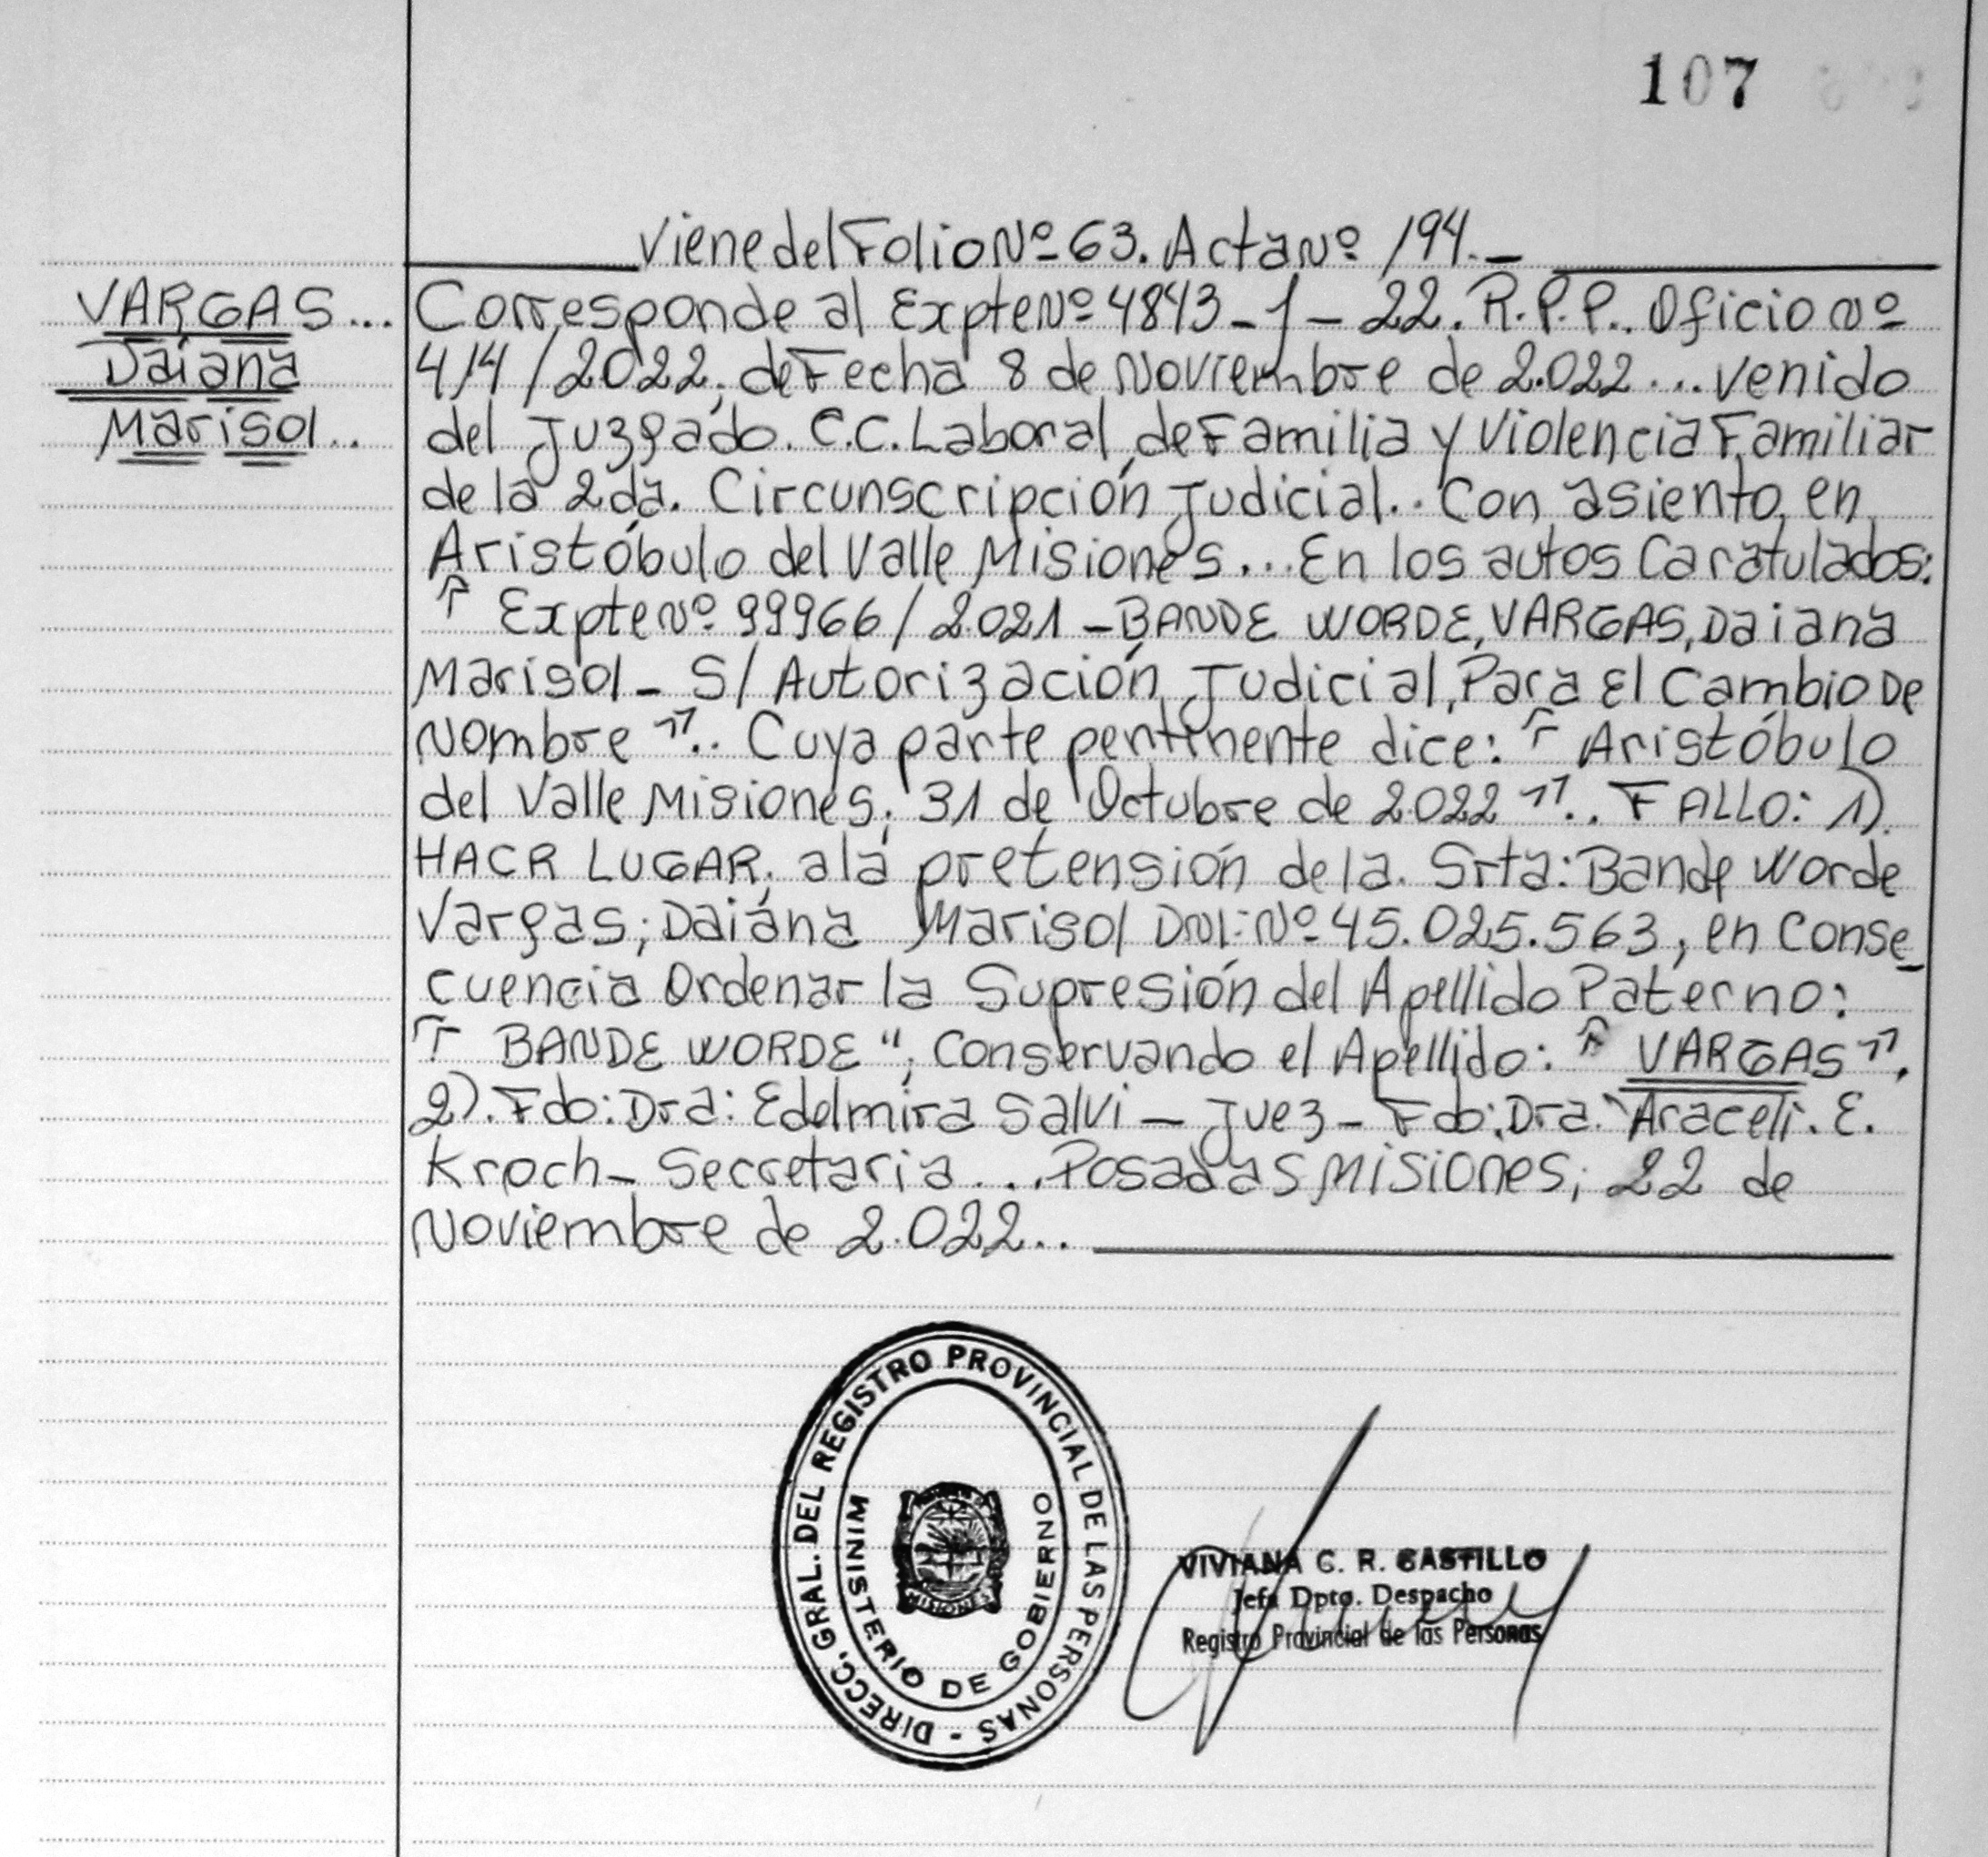 107
Viene del Folio Nº 63. Acta Nº 194.-
VARGAS...
Daiana
Marisol..
Corresponde al Expte Nº 4843-1-22. R.P.P.. Oficio Nº
414/2022; de Fecha 8 de Noviembre de 2.022... venido
del Juzgado. C.C. Laboral, de Familia y Violencia Familiar
de la 2da. Circunscripción Judicial.. Con asiento en
Aristóbulo del Valle Misiones... En los autos Caratulados:
" Expte Nº 99966/2.021 - BANDE WORDE, VARGAS, Daiana
Marisol - S/ Autorización Judicial, Para El Cambio De
Nombre ".. Cuya parte pentinente dice: " Aristóbulo
del Valle Misiones; 31 de Octubre de 2.022 ".. FALLO: 1).
HACR LUGAR; a la pretensión de la. Srta: Bande Worde
Vargas; Daiana Marisol DNI: Nº 45.025.563, en Conse_
cuencia Ordenar la Supresión del Apellido Paterno:
" BANDE WORDE "; Conservando el Apellido: " VARGAS ".
2). Fdo: Dra: Edelmira Salvi - Juez - Fdo: Dra. Araceli. E.
Kroch - Secretaria... Posadas Misiones; 22 de
Noviembre de 2.022..
DIRECC. GRAL. DEL REGISTRO PROVINCIAL DE LAS PERSONAS -
MINISTERIO DE GOBIERNO
MISIONES
VIVIANA C. R. CASTILLO
Jefa Dpto. Despacho
Registro Provincial de las Personas